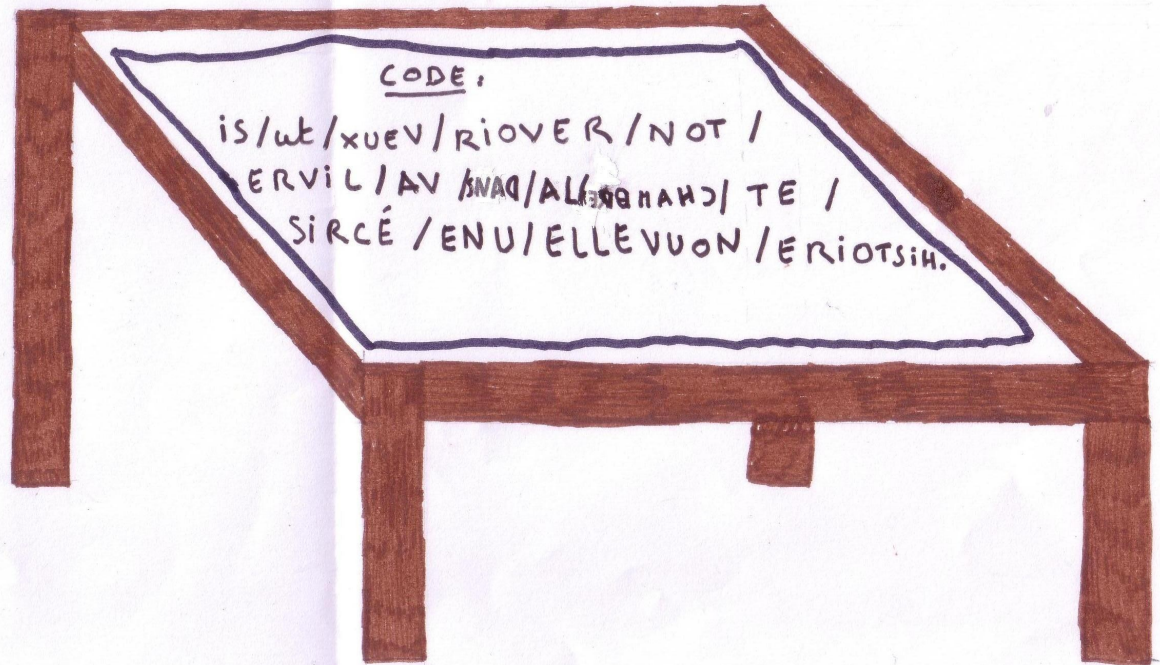 CODE:
is/ut/xUEV/RiOVER/NOT/
ERViL/AV/SNAD/AL/ERBMAHC/TE/
SiRCÉ/ENU/ELLEVUON/ERiOTSiH.